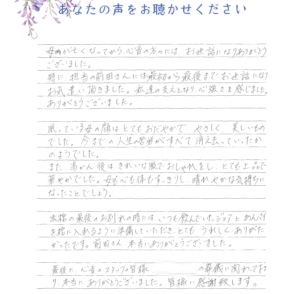 あなたの声をお聴かせください
母が亡くなってから心香の方々には お世話になりありがとう
ございました。
特に 担当の前田さんには最初から最後まで お世話になり
お気遣い頂きました。私達の支えとなり心強さを感じました。
ありがとうございました。
眠っている母の顔はとてもおだやかで やさしく 美しいもの
でした。今までの人生の苦労がすべて 消えていったか
のようでした。
また、湯かん後はきれいな服でおしゃれをし、とても上品で
華やかでした。母も心も体もすっきりし 晴れやかな気持ちに
なったことでしょう。
出棺の最後のお別れの時には いつも飲んでいた
を棺に入れるように準備していただき とても うれしく ありがた
かったです。前田さん 本当にありがとうございました。
最後に 心香のスタッフの皆様 の葬儀に関わって下さ
り 本当にありがとうございました。皆様に感謝致します。